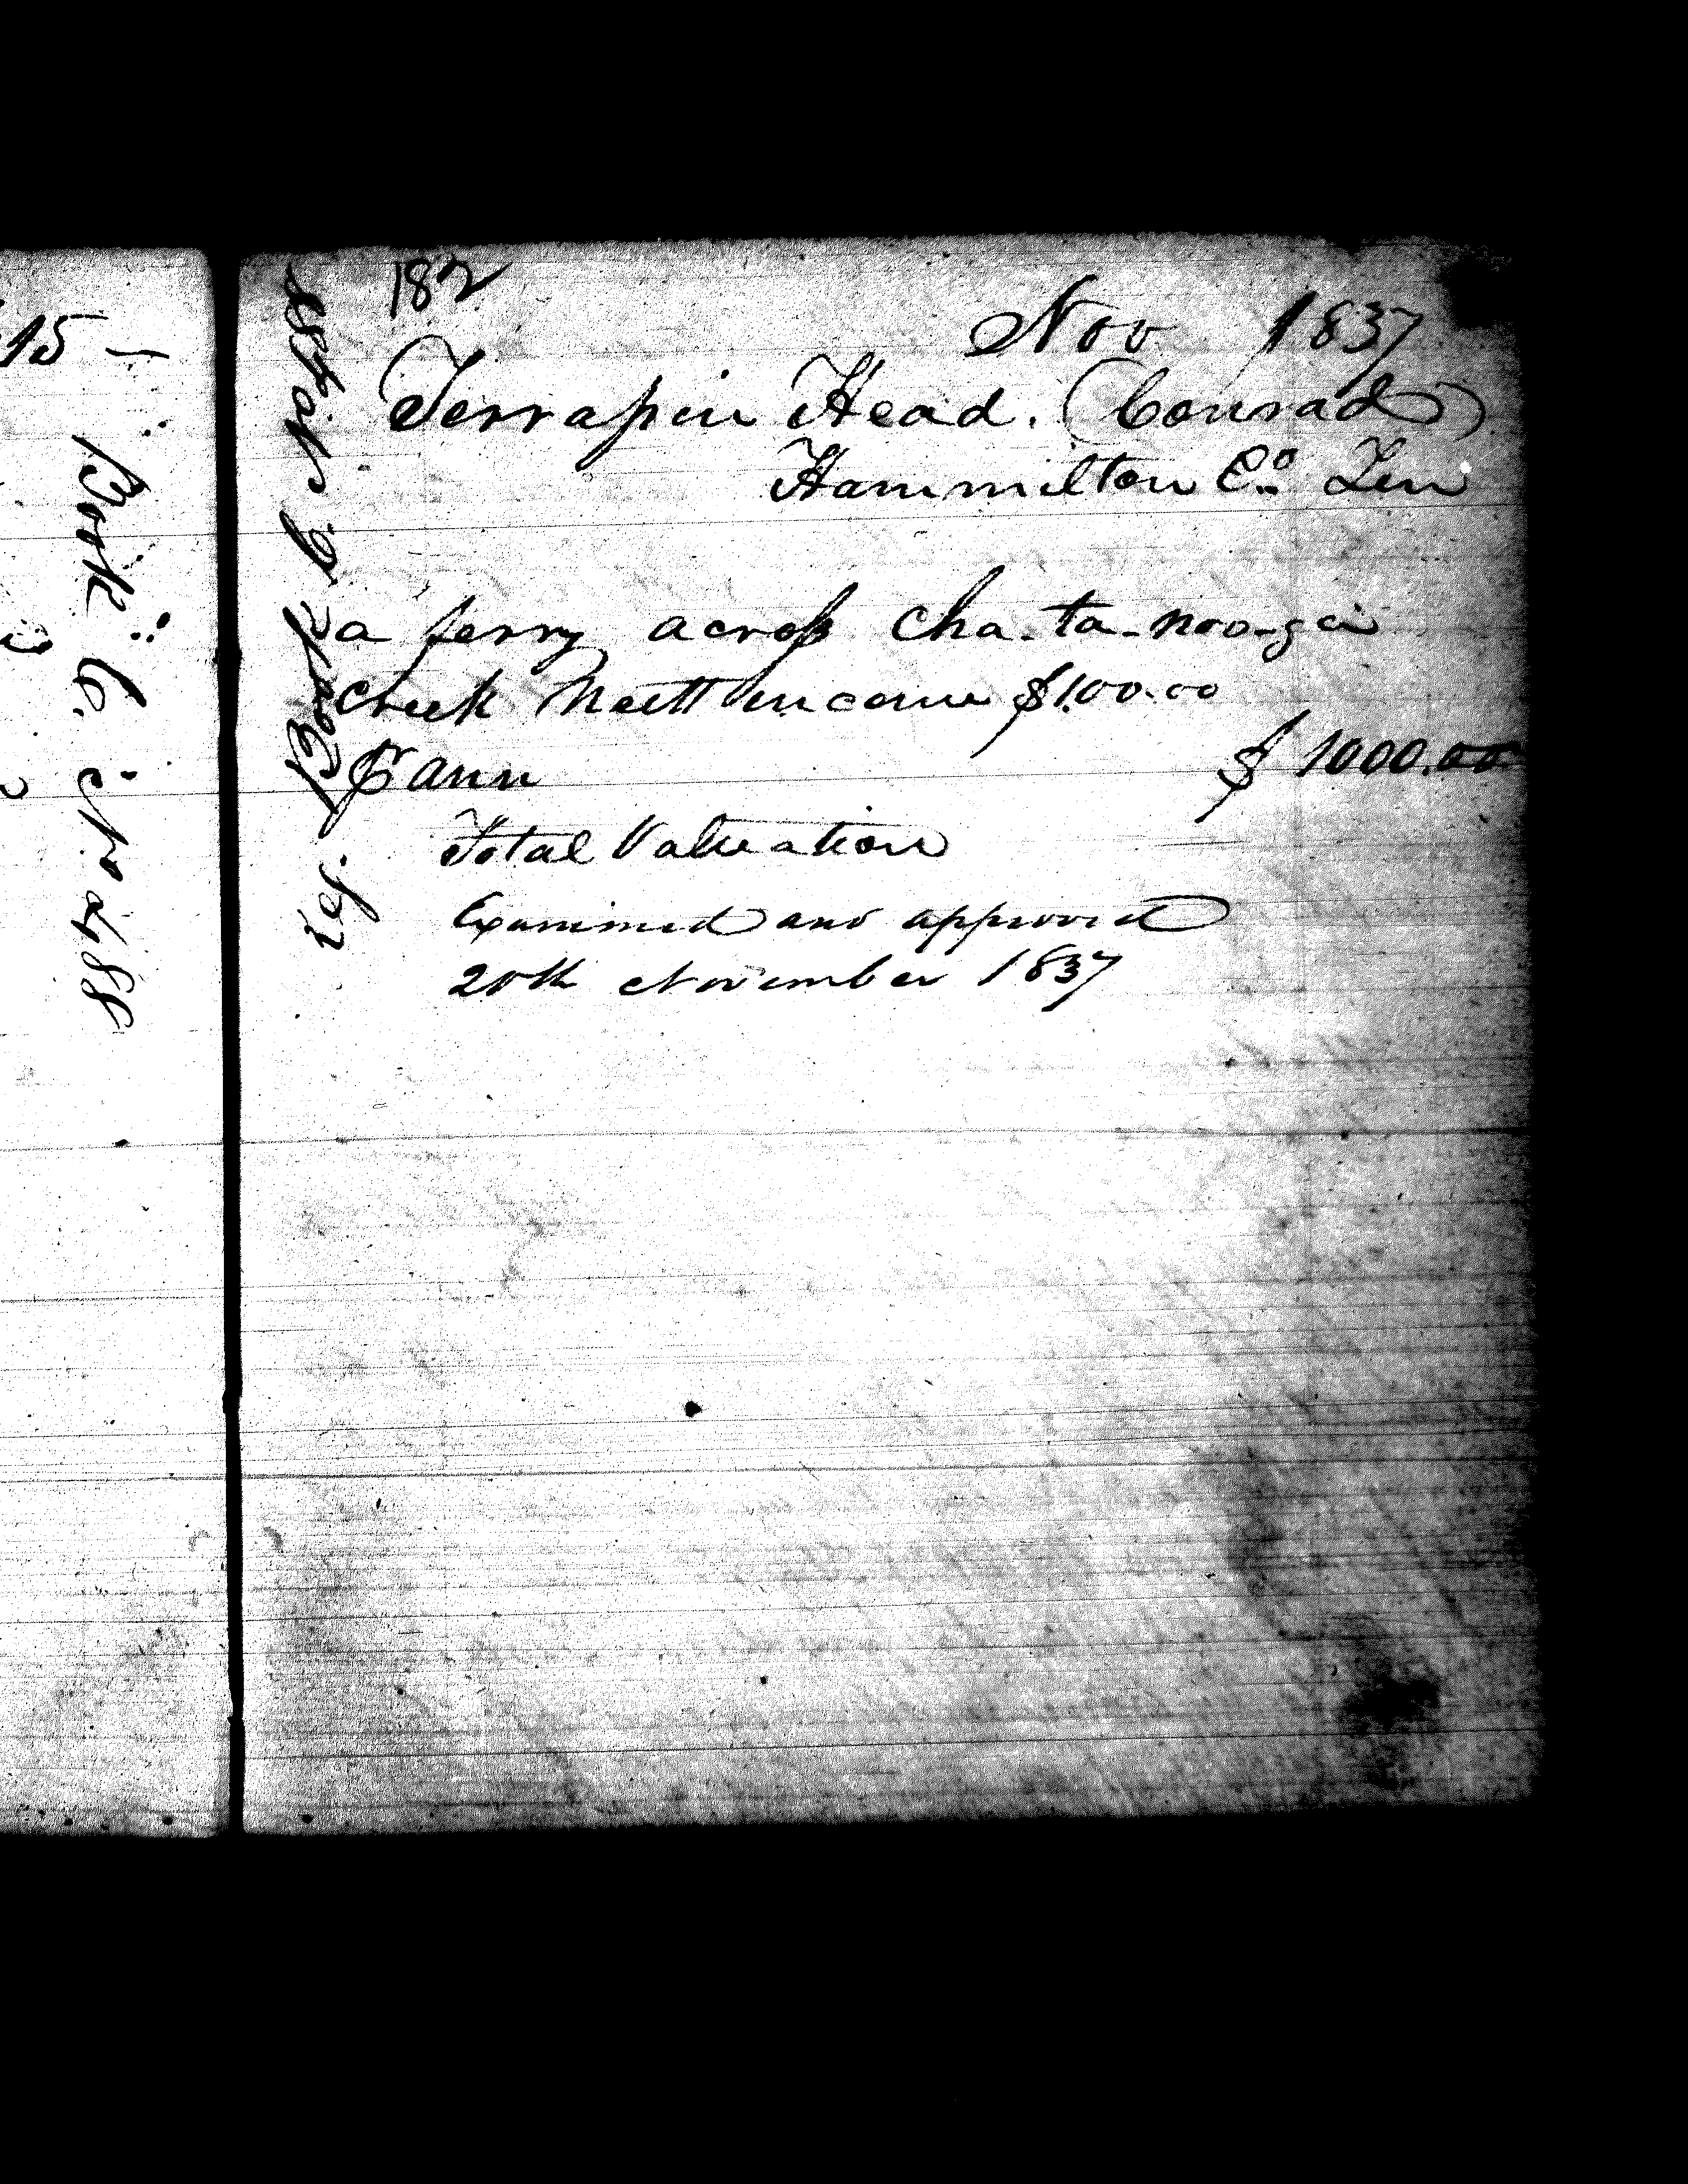 15 —
Book C. No 488
182
Nov 1837
Terrapin Head. (Conrad)
Hammilton Co. Ten
a ferry across Cha-ta-noo-ga
Creek Nett income $100.00
pr ann $1000.00
Total Valuation
Examined and approved
20th November 1837
Book C. No 488